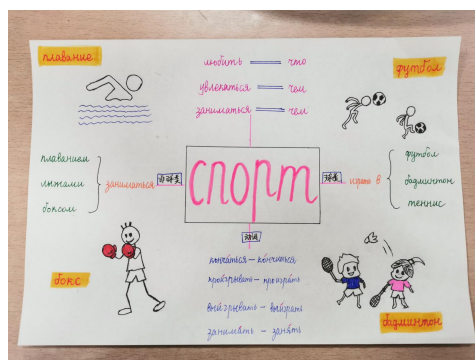 плавание
любить — что
футбол
увлекаться — чем
заниматься — чем
плаванием
лыжами
боксом
заниматься
спорт
球类
играть в
футбол
бадминтон
теннис
动词
кончаться – кончиться
проигрывать – проиграть
выигрывать – выиграть
занимать – занять
бокс
бадминтон